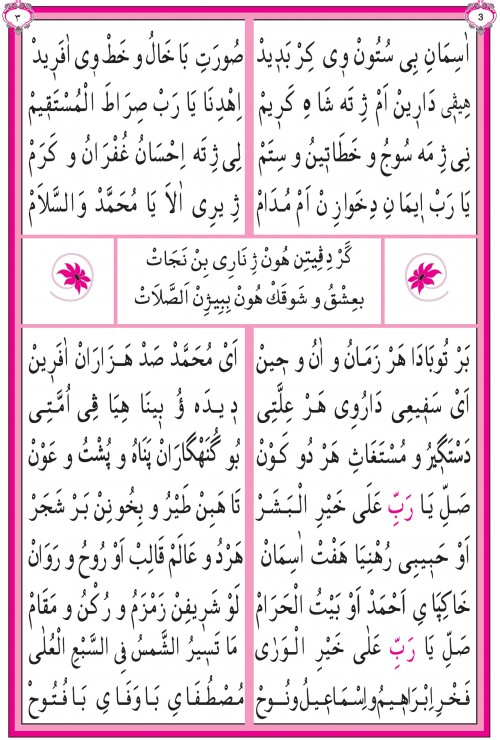 ٣ 3
اٰسِمَانِ بِی سُتُونْ وِی کِرْ بَدٖیدْ صُورَتِ بَاخَالُ و خَطْ وِی اٰفَرٖیدْ
هِیڤِی دَارِینْ اَمْ ژِ تَه شَاهِ کَرٖیمْ اِهْدِنَا یَا رَبْ صِرَاطَ الْمُسْتَقٖیمْ
نِی ژِ مَه سُوجُ و خَطَاتِینُ و سِتَمْ لِی ژِتَه اِحْسَانُ غُفْرَانُ و کَرَمْ
یَا رَبْ اٖیمَانِ دِخَوازِنْ اَمْ مُدَامْ ژِ بِرِی اٰلَا یَا مُحَمَّدْ وَالسَّلَامْ
گَرْ دِڤِیتِن هُونْ ژِ نَارِی بِنْ نَجَاتْ
بِعِشْقُ و شَوقَكْ هُونْ بِبِیژِنْ اَلصَّلَاتْ
بَرْ تُوبَادَا هَرْ زَمَانُ و اٰنُ و حٖینْ اَیْ مُحَمَّدْ صَدْ هَزَارَانْ اٰفَرٖینْ
اَیْ سَفِیعِی دَارُوِی هَرْ عِلَّتِی دٖیدَه ؤُ بٖینَا هِیَا ڤِی اُمَّتِی
دَسْتَگٖیرُ و مُسْتَغَاثِ هَرْ دُو کَوْنْ بُو گُنَهْگَارَانْ پَنَاهُ و پُشْتُ و عَوْنْ
صَلِّ یَا رَبِّ عَلَی خَیْرِ الْبَشَرْ تَا هَبِنْ طَیْرُ و بِخُونِنْ بَرْ شَجَرْ
اَوْ حَبٖیبِی رُهْنِیَا هَفْتْ اٰسِمَانْ هَرْدُ و عَالَمْ قَالِبْ اَوْ رُوحُ و رَوَانْ
خَاکِپَایِ اَحْمَدْ اَوْ بَیْتُ الْحَرَامْ لَوْ شَرٖیفِنْ زَمْزَمُ و رُکْنُ و مَقَامْ
صَلِّ یَا رَبِّ عَلٰی خَیْرِ الْوَرٰی مَا تَسٖیرُ الشَّمْسُ فِی السَّبْعِ الْعُلٰی
فَخْرِ اِبْرَاهٖیمُ و اِسْمَاعٖیلُ و نُوحْ مُصْطَفَایِ بَا وَفَایِ بَا فُتُوحْ